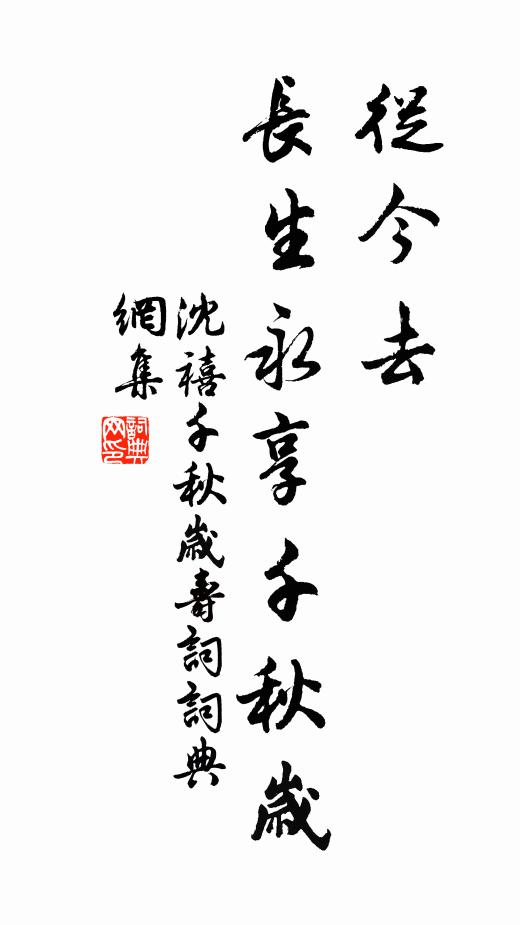 從今去
長生永享千秋歲
沈禧千秋歲壽詞詞典
網集
詞典
网印